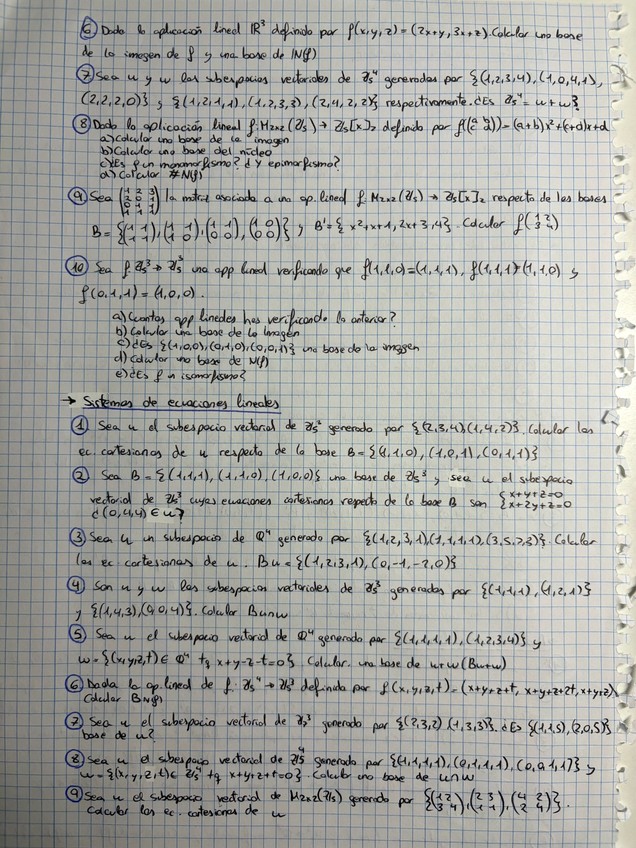 ⑥ Dada la aplicación lineal ℝ³ definida por f(x,y,z) = (2x+y, 3x+z). Calcular una base
de la imagen de f y una base de N(f)
⑦ Sea u y w los subespacios vectoriales de ℤ₅⁴ generados por {(1,2,3,4), (1,0,4,1),
(2,2,2,0)} y {(1,2,1,1), (1,2,3,3), (2,4,2,2)} respectivamente. ¿Es ℤ₅⁴ = u+w?
⑧ Dada la aplicación lineal f: M₂ₓ₂(ℤ₅) → ℤ₅[x]₂ definida por f(a b / c d) = (a+b)x²+(c+d)x+d
a) Calcular una base de la imagen
b) Calcular una base del núcleo
c) ¿Es f un monomorfismo? ¿Y epimorfismo?
d) Calcular #N(f)
⑨ Sea (1 2 3 / 2 0 1 / 0 1 1 / 1 1 1) la matriz asociada a una ap. lineal f: M₂ₓ₂(ℤ₅) → ℤ₅[x]₂ respecto de las bases
B = {(1 1 / 1 1), (1 1 / 1 0), (1 1 / 0 0), (1 0 / 0 0)} y B' = {x²+x+1, 2x+3, 4}. Calcular f(1 2 / 3 4)
⑩ Sea f ℤ₅³ → ℤ₅³ una app lineal verificando que f(1,1,0) = (1,1,1), f(1,1,1) = (1,1,0) y
f(0,1,1) = (1,0,0).
a) Cuantas app lineales hay verificando lo anterior?
b) Calcular una base de la Imagen
c) ¿Es {(1,0,0), (0,1,0), (0,0,1)} una base de la imagen
d) Calcular una base de N(f)
e) ¿Es f un isomorfismo?
→ Sistemas de ecuaciones lineales
① Sea u el subespacio vectorial de ℤ₅³ generado por {(2,3,4)(1,4,2)}. Calcular las
ec. cartesianas de u respecto de la base B = {(1,1,0), (1,0,1), (0,1,1)}
② Sea B = {(1,1,1), (1,1,0), (1,0,0)} una base de ℤ₅³ y sea u el subespacio
vectorial de ℤ₅³ cuyas ecuaciones cartesianas respecto de la base B son {x+y+z=0 / x+2y+z=0
¿(0,4,4) ∈ u?
③ Sea u un subespacio de ℚ⁴ generado por {(1,2,3,1), (1,1,1,1), (3,5,7,3)}. Calcular
las ec cartesianas de u. Bu = {(1,2,3,1), (0,-1,-2,0)}
④ Son u y w los subespacios vectoriales de ℤ₅³ generados por {(1,1,1), (1,2,1)}
y {(1,4,3), (0,0,4)}. Calcular Bu∩w
⑤ Sea u el subespacio vectorial de ℚ⁴ generado por {(1,1,1,1), (1,2,3,4)} y
w = {(x,y,z,t) ∈ ℚ⁴ tq x+y-z-t=0} Calcular una base de u+w (Bu+w)
⑥ Dada la ap. lineal de f: ℤ₅⁴ → ℤ₅³ definida por f(x,y,z,t) = (x+y+z+t, x+y+z+2t, x+y+z)
Calcular BN(f)
⑦ Sea u el subespacio vectorial de ℤ₅³ generado por {(2,3,2)(1,3,3)}. ¿Es {(1,1,5), (2,0,5)}
base de u?
⑧ Sea u el subespacio vectorial de ℤ₅⁴ generado por {(1,1,1,1), (0,1,1,1), (0,0,1,1)} y
w = {(x,y,z,t) ∈ ℤ₅⁴ tq x+y+z+t=0}. Calcular una base de u∩w.
⑨ Sea u el subespacio vectorial de M₂ₓ₂(ℤ₅) generado por {(1 2 / 3 4), (2 3 / 1 1), (4 2 / 2 4)}.
Calcular las ec. cartesianas de u